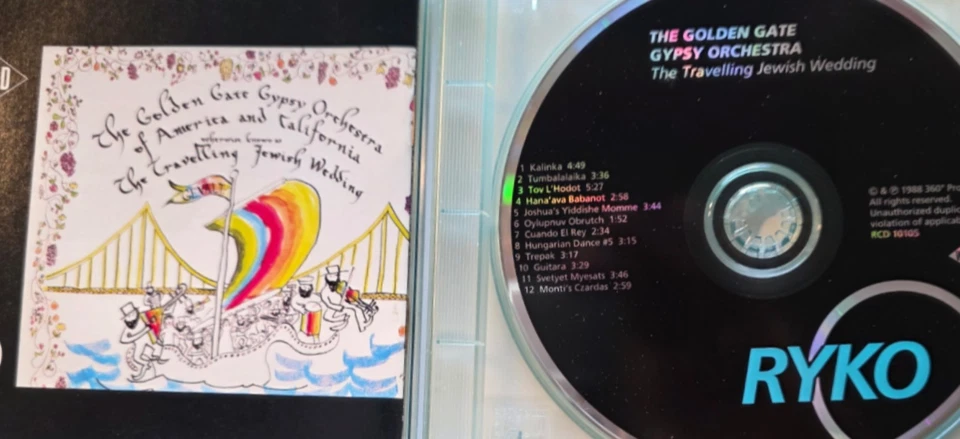 D
The Golden Gate Gypsy Orchestra
of America and California
otherwise known as
The Travelling Jewish Wedding
THE GOLDEN GATE
GYPSY ORCHESTRA
The Travelling Jewish Wedding
1 Kalinka 4:49
2 Tumbalalaika 3:36
3 Tov L'Hodot 5:27
4 Hana'ava Babanot 2:58
5 Joshua's Yiddishe Momme 3:44
6 Oylupnuv Obrutch 1:52
7 Cuando El Rey 2:34
8 Hungarian Dance #5 3:15
9 Trepak 3:17
10 Guitara 3:29
11 Svetyet Myesats 3:46
12 Monti's Czardas 2:59
© & ℗ 1988 360° Pro
All rights reserved.
Unauthorized duplic
violation of applicab
RCD 10105
RYKO